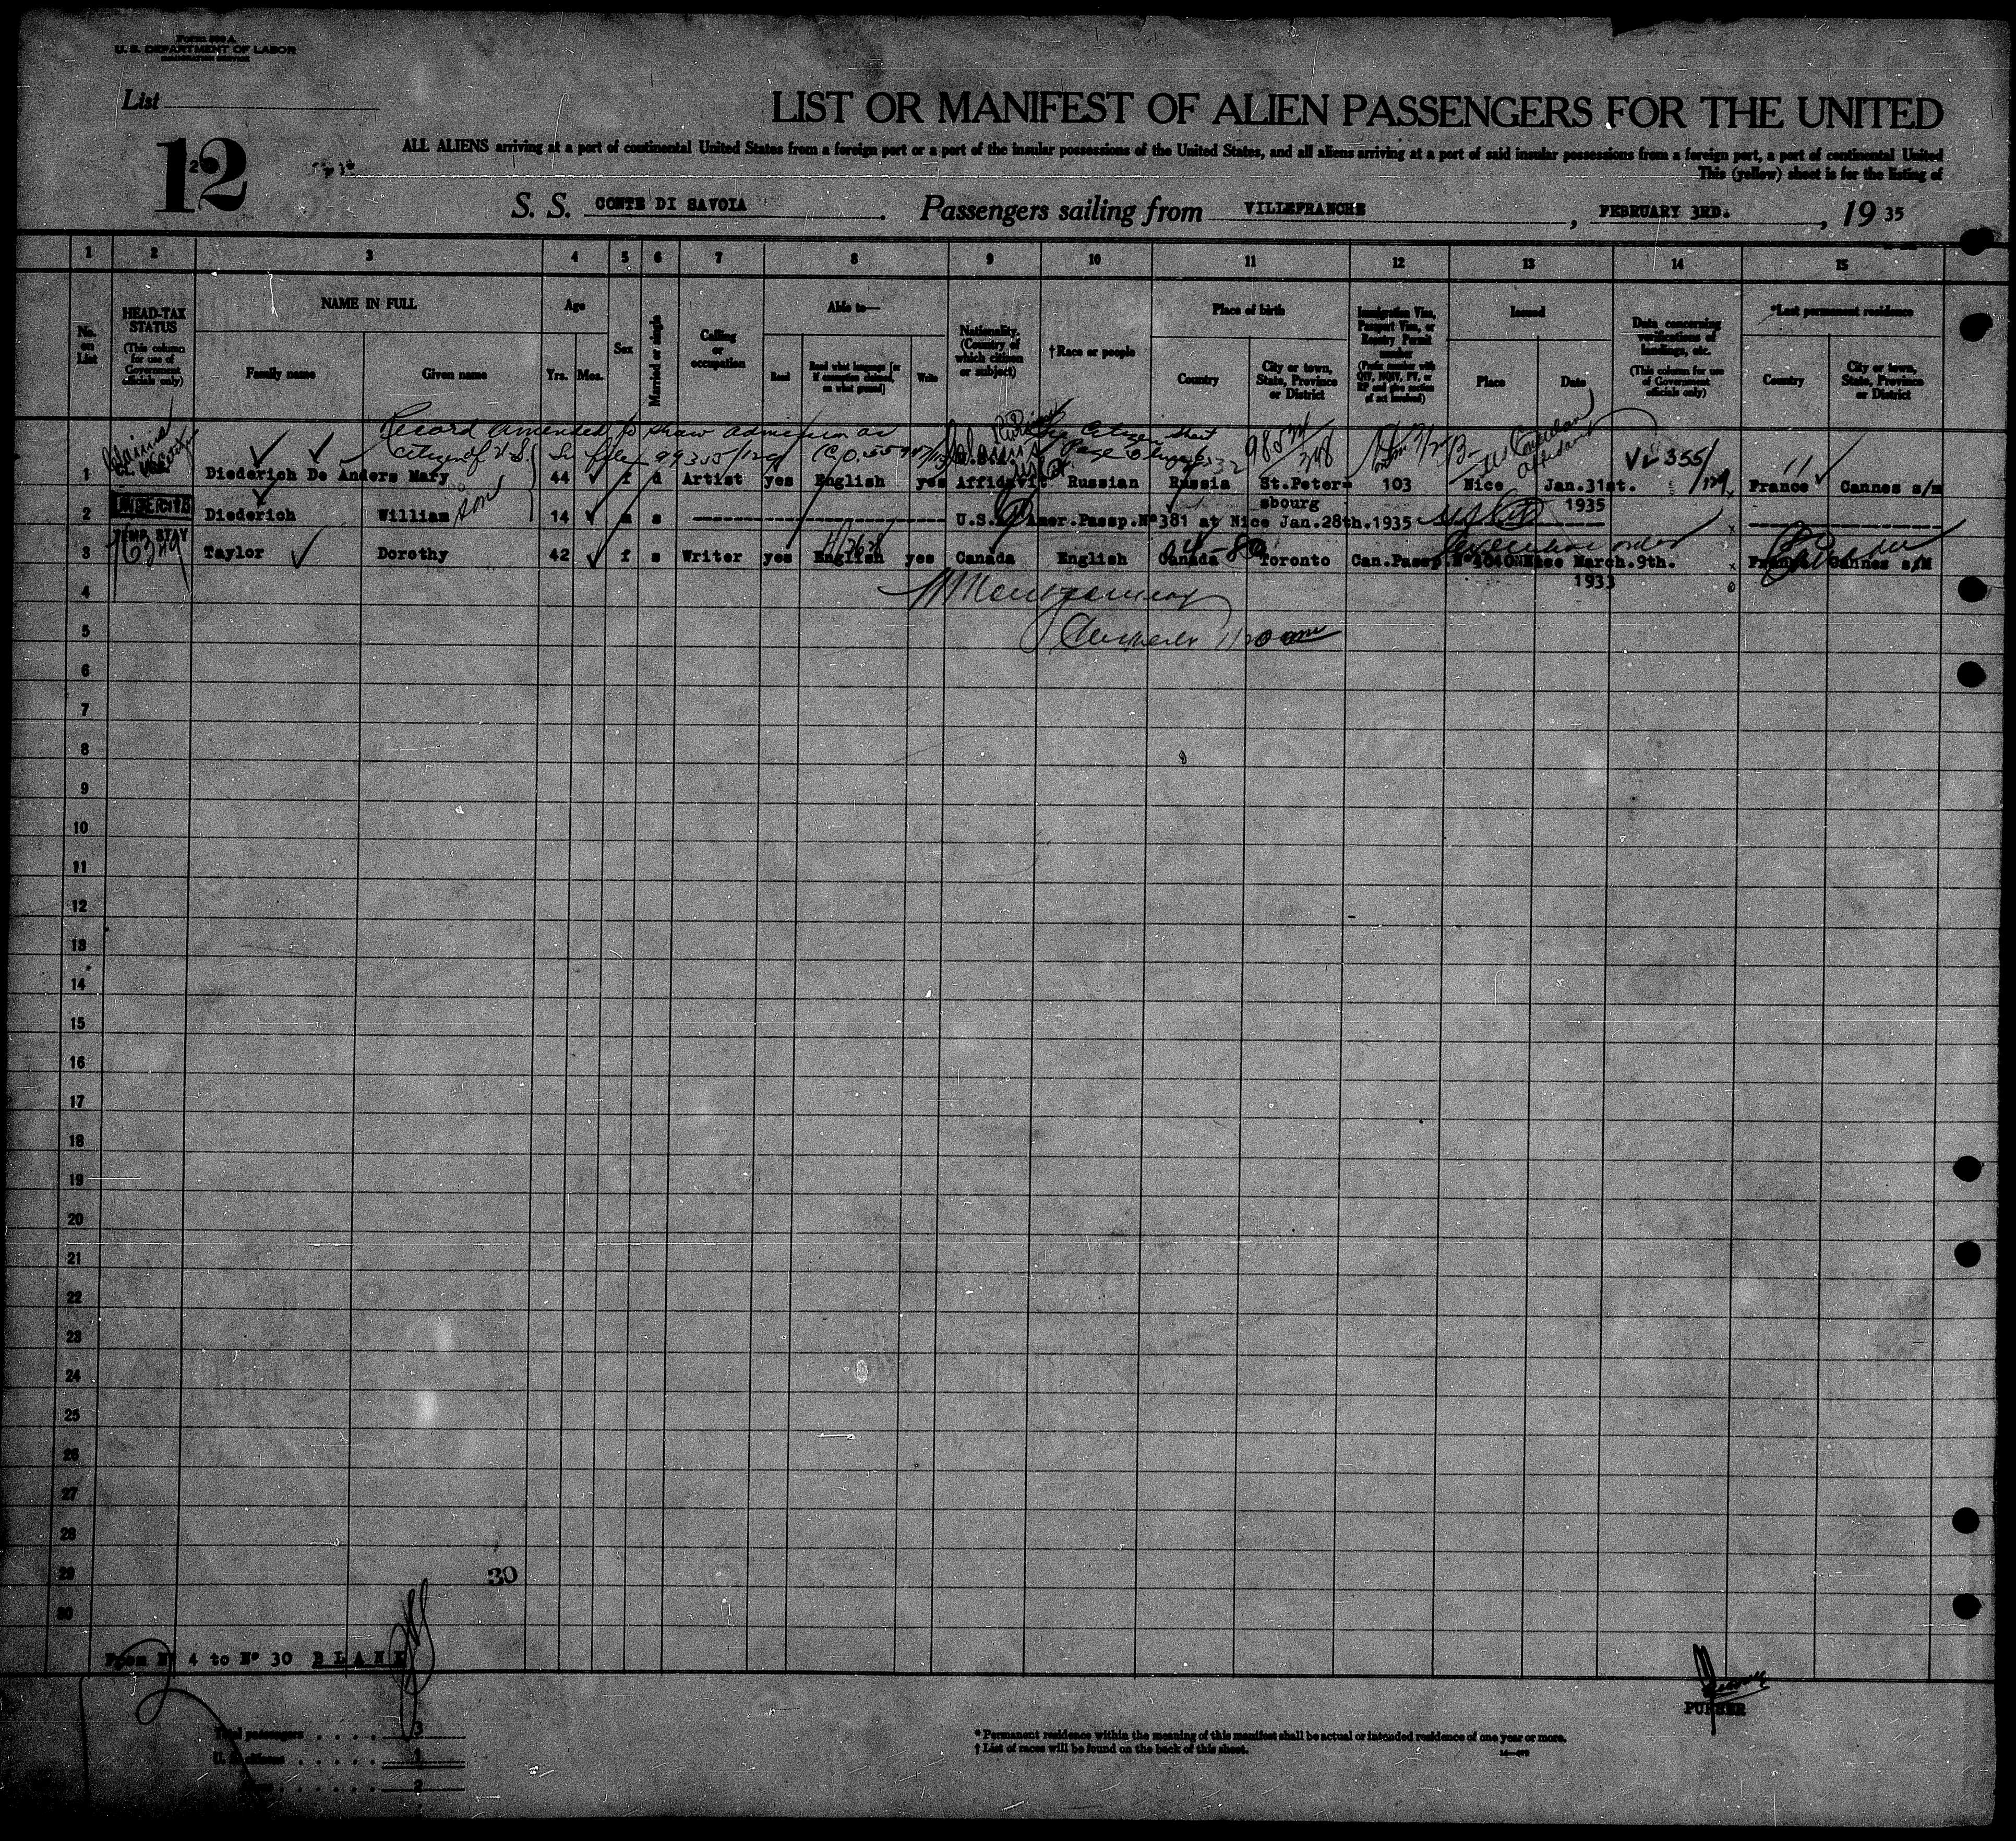 Form 500 A
U. S. DEPARTMENT OF LABOR
IMMIGRATION SERVICE
List
12
2
LIST OR MANIFEST OF ALIEN PASSENGERS FOR THE UNITED
ALL ALIENS arriving at a port of continental United States from a foreign port or a port of the insular possessions of the United States, and all aliens arriving at a port of said insular possessions from a foreign port, a port of continental United
This (yellow) sheet is for the listing of
S. S. CONTE DI SAVOIA . Passengers sailing from VILLEFRANCHE , FEBRUARY 3RD. , 19 35
1 2 3 4 5 6 7 8 9 10 11 12 13 14 15
No. on List
HEAD-TAX STATUS
(This column for use of Government officials only)
NAME IN FULL
Family name
Given name
Age
Yrs. Mos.
Sex
Married or single
Calling or occupation
Able to—
Read
Read what language [or if exemption claimed, on what ground]
Write
Nationality. (Country of which citizen or subject)
†Race or people
Place of birth
Country
City or town, State, Province or District
Immigration Visa, Passport Visa, or Reentry Permit number
(Prefix number with QIV, NQIV, PV, or RP and give section of act involved)
Issued
Place
Date
Data concerning verifications of landings, etc.
(This column for use of Government officials only)
*Last permanent residence
Country
City or town, State, Province or District
Record amended to show admission as
citizen of U.S. 99355/129
985 348
V-355/129
1 Diederich De Anders Mary 44 f d Artist yes English yes Affidavit Russian Russia St.Peter- 103 Nice Jan.31st. France Cannes s/m
sbourg 1935
UNDER 16
2 Diederich William son 14 m s U.S.A. Amer.Passp.Nº381 at Nice Jan.28th.1935
TEMP. STAY
3 Taylor Dorothy 42 f s Writer yes English yes Canada English Canada Toronto Can.Passp.Nº4040 Nice March.9th. France Cannes s/M
Executive order
1933
4
Montgomery
5
6
7
8
9
10
11
12
13
14
15
16
17
18
19
20
21
22
23
24
25
26
27
28
29
30
30
From Nº 4 to Nº 30 BLANK
PURSER
Total passengers . . . . 3
U. S. citizens . . . . 1
2
* Permanent residence within the meaning of this manifest shall be actual or intended residence of one year or more.
† List of races will be found on the back of this sheet.